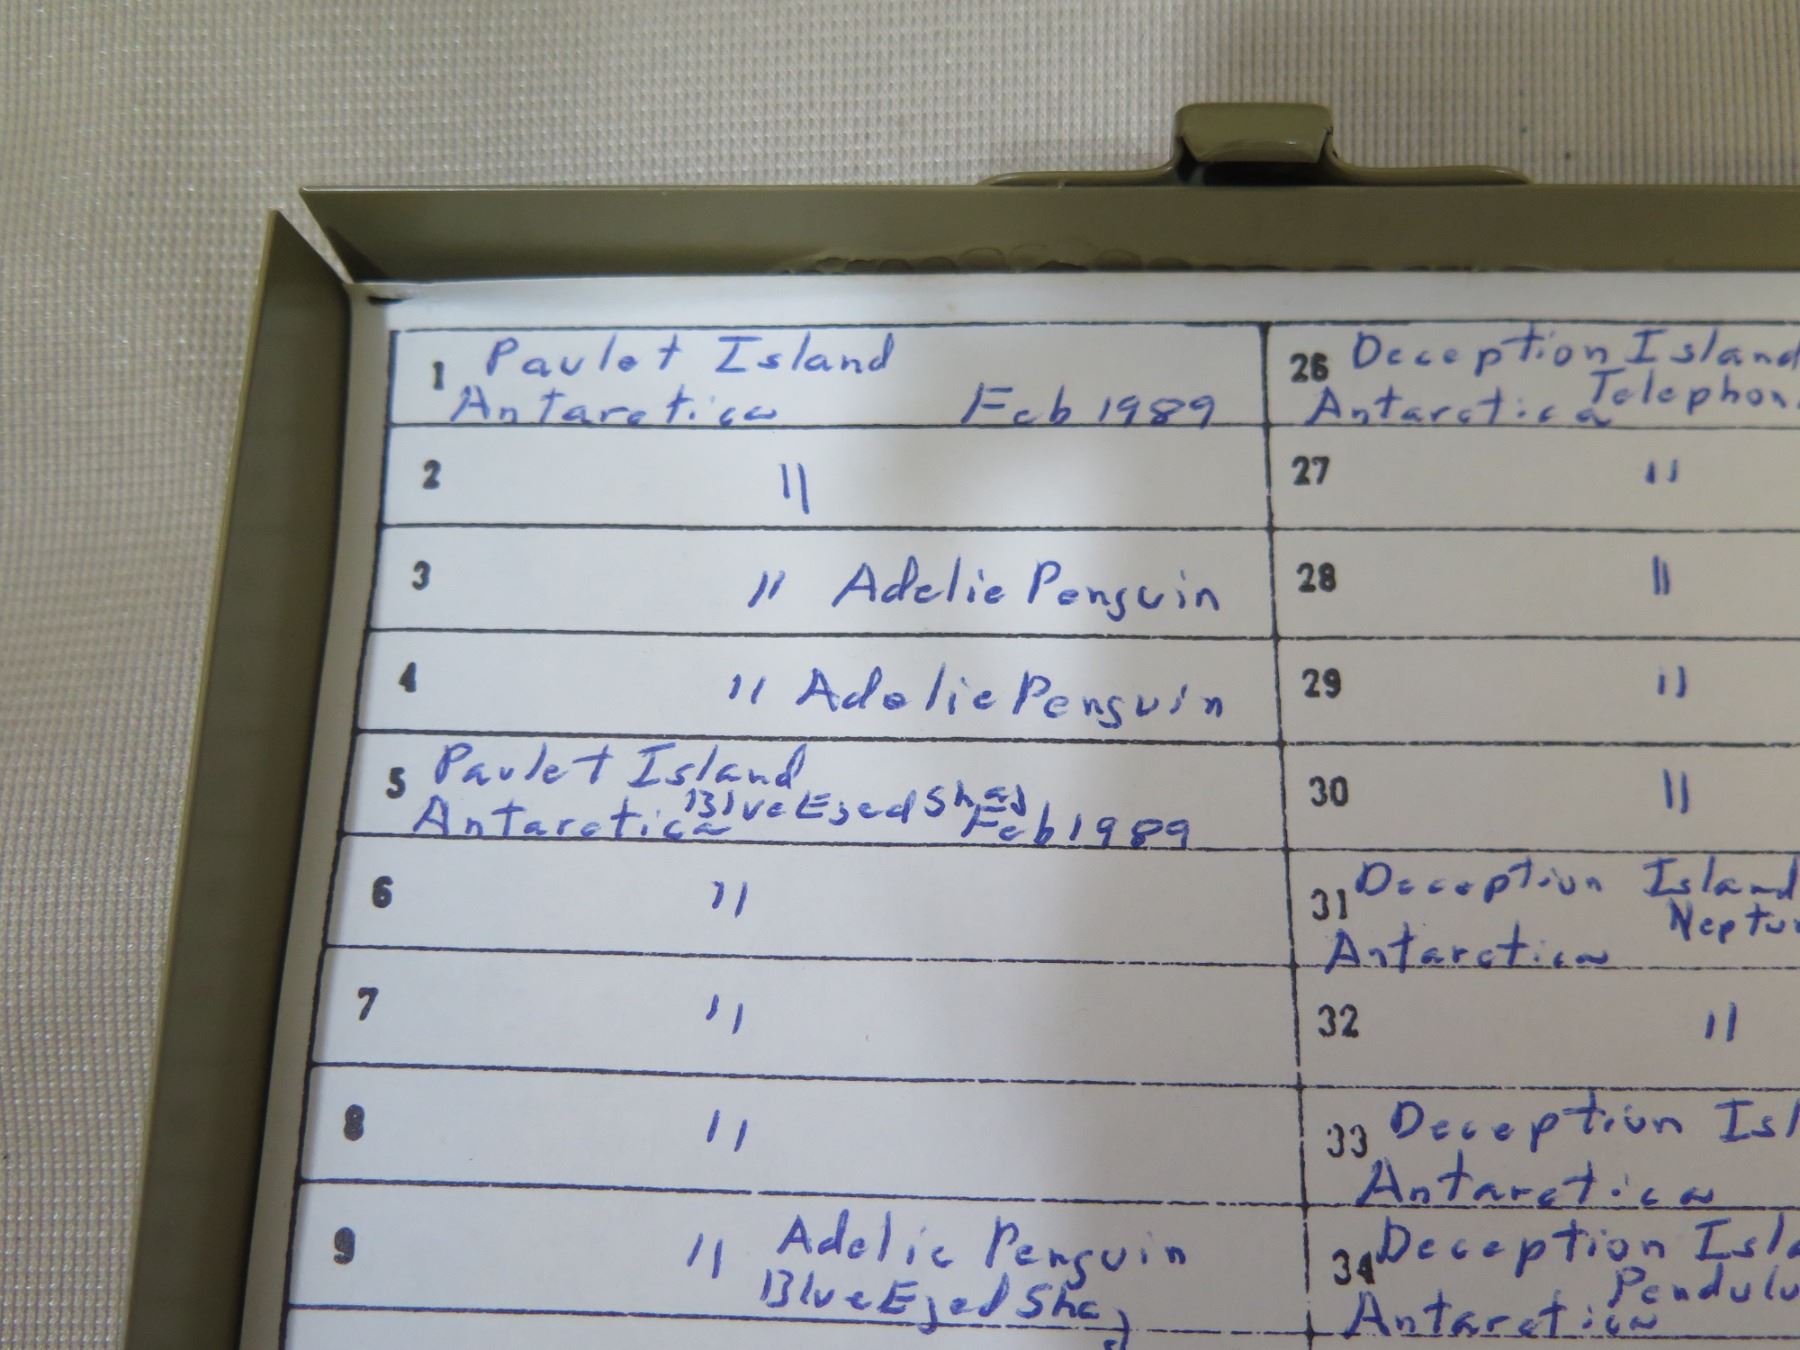 1 Paulet Island
Antarctica Feb 1989
2 "
3 " Adelie Penguin
4 " Adelie Penguin
5 Paulet Island
Blue Eyed Shag
Antarctica Feb 1989
6 "
7 "
8 "
9 " Adelie Penguin
Blue Eyed Shag
26 Deception Island
Telephon
Antarctica
27 "
28 "
29 "
30 "
31 Deception Island
Neptu
Antarctica
32 "
33 Deception Isl
Antarctica
34 Deception Isla
Pendulu
Antarctica